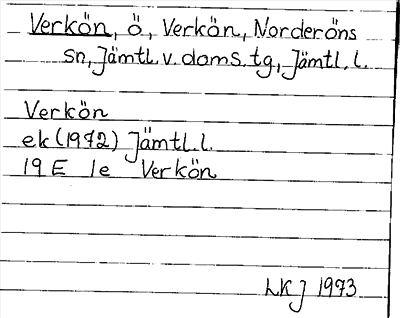 Verkön, ö, Verkön, Norderöns
sn, Jämtl. v. doms. tg, Jämtl. l.
Verkön
ek (1972) Jämtl. l.
19 E 1e Verkön
LKJ 1973